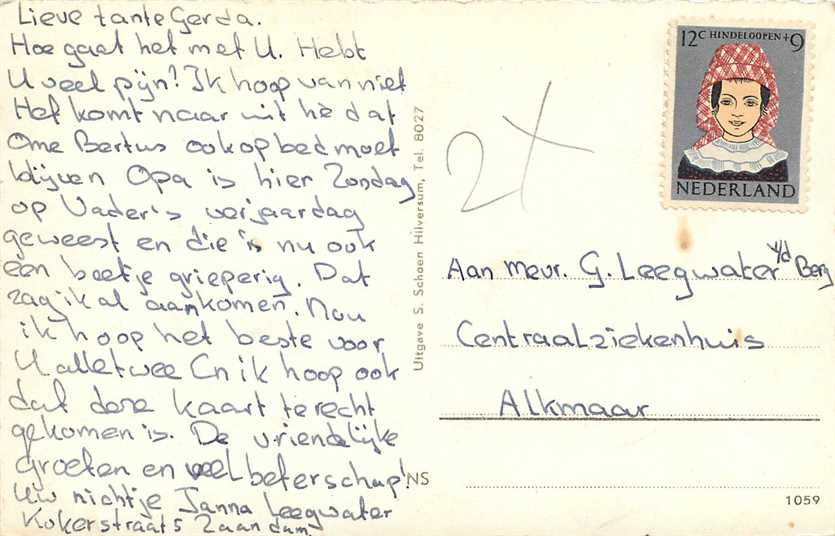 Lieve tante Gerda.
Hoe gaat het met U. Hebt
U veel pijn? Ik hoop van niet
Het komt naar uit hè dat
Ome Bertus ook op bed moet
blijven Opa is hier Zondag
op Vader's verjaardag
geweest en die is nu ook
een beetje grieperig. Dat
zag ik al aankomen. Nou
ik hoop het beste voor
U alletwee En ik hoop ook
dat deze kaart terecht
gekomen is. De vriendelijke
groeten en veel beterschap!
Uw nichtje Janna Leegwater
Kokerstraat 5 Zaandam.
Uitgave S. Schoen Hilversum, Tel. 8027
NS
2x
12C HINDELOOPEN +9
NEDERLAND
Aan mevr. G. Leegwater v/d Berg
Centraalziekenhuis
Alkmaar
1059